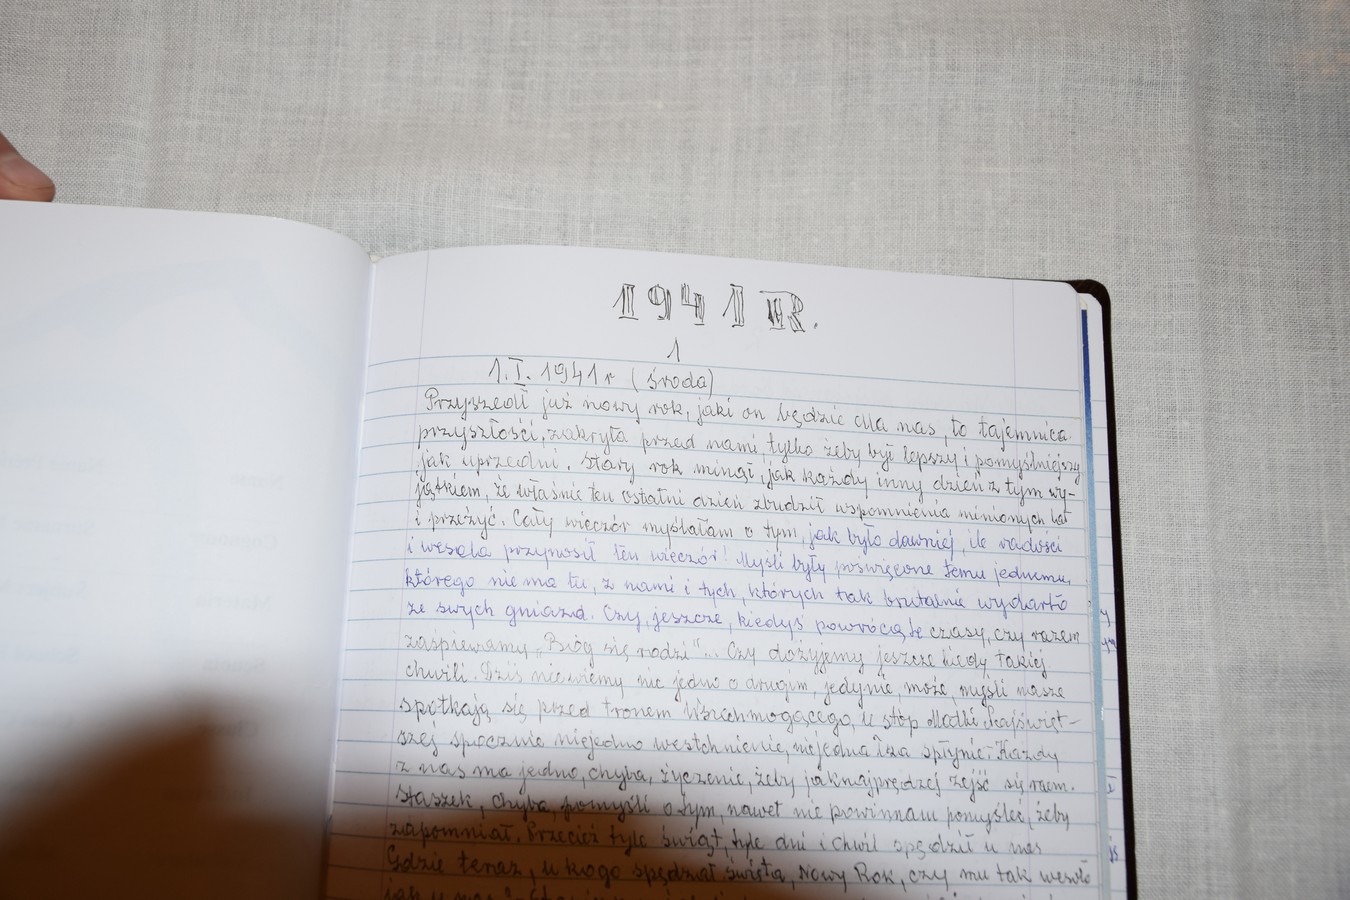 1941 R.
1
1.I.1941 r (środa)
Przyszedł już nowy rok, jaki on będzie dla nas, to tajemnica
przyszłości, zakryta przed nami, tylko żeby był lepszy i pomyślniejszy
jak uprzedni. Stary rok minął, jak każdy inny dzień z tym wy-
jątkiem, że właśnie ten ostatni dzień zbudził wspomnienia minionych lat
i przeżyć. Cały wieczór myślałam o tym, jak było dawniej, ile radości
i wesela przynosił ten wieczór! Myśli były poświęcone temu jednemu,
którego nie ma tu, z nami i tych, których tak brutalnie wydarto
ze swych gniazd. Czy, jeszcze, kiedyś powrócą te czasy, czy razem
zaśpiewamy „Bóg się rodzi"... Czy dożyjemy jeszcze kiedy takiej
chwili. Dziś nie wiemy nic jedno o drugim, jedynie, może, myśli nasze
spotkają się przed tronem Wszechmogącego, u stóp Matki Najświęt-
szej spocznie niejedno westchnienie, niejedna łza spłynie. Każdy
z nas ma jedno, chyba, życzenie, żeby jaknajprędzej zejść się razem.
Staszek, chyba, pomyśli o tym, nawet nie powinnam pomyśleć, żeby
zapomniał. Przecież tyle świąt, tyle dni i chwil spędził u nas
Gdzie teraz, u kogo spędzał święta, Nowy Rok, czy mu tak wesoło